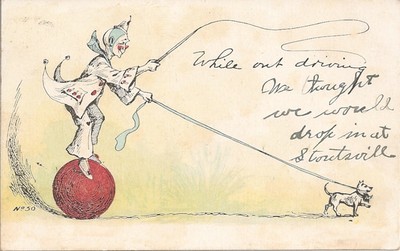 While out driving
We thought
we would
drop in at
Stoutsvill
No 30